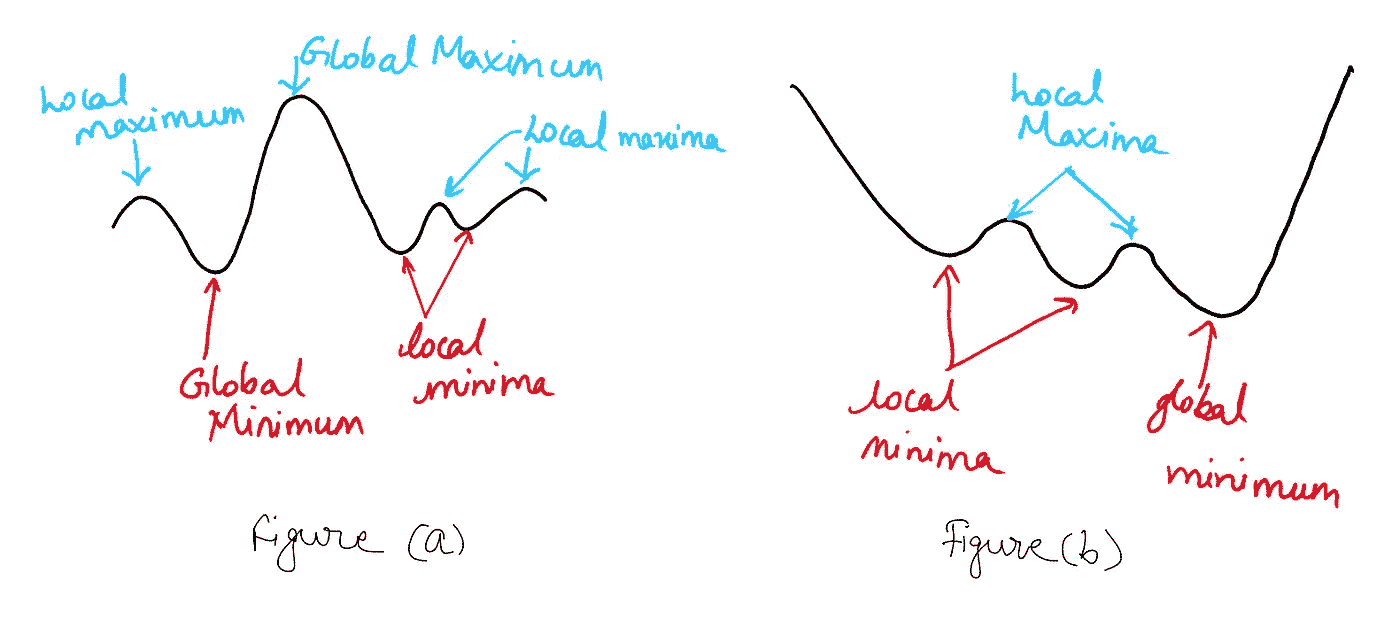 Global Maximum
Local
maximum
Local maxima
Global
Minimum
local
minima
Figure (a)
Local
Maxima
local
minima
global
minimum
Figure (b)